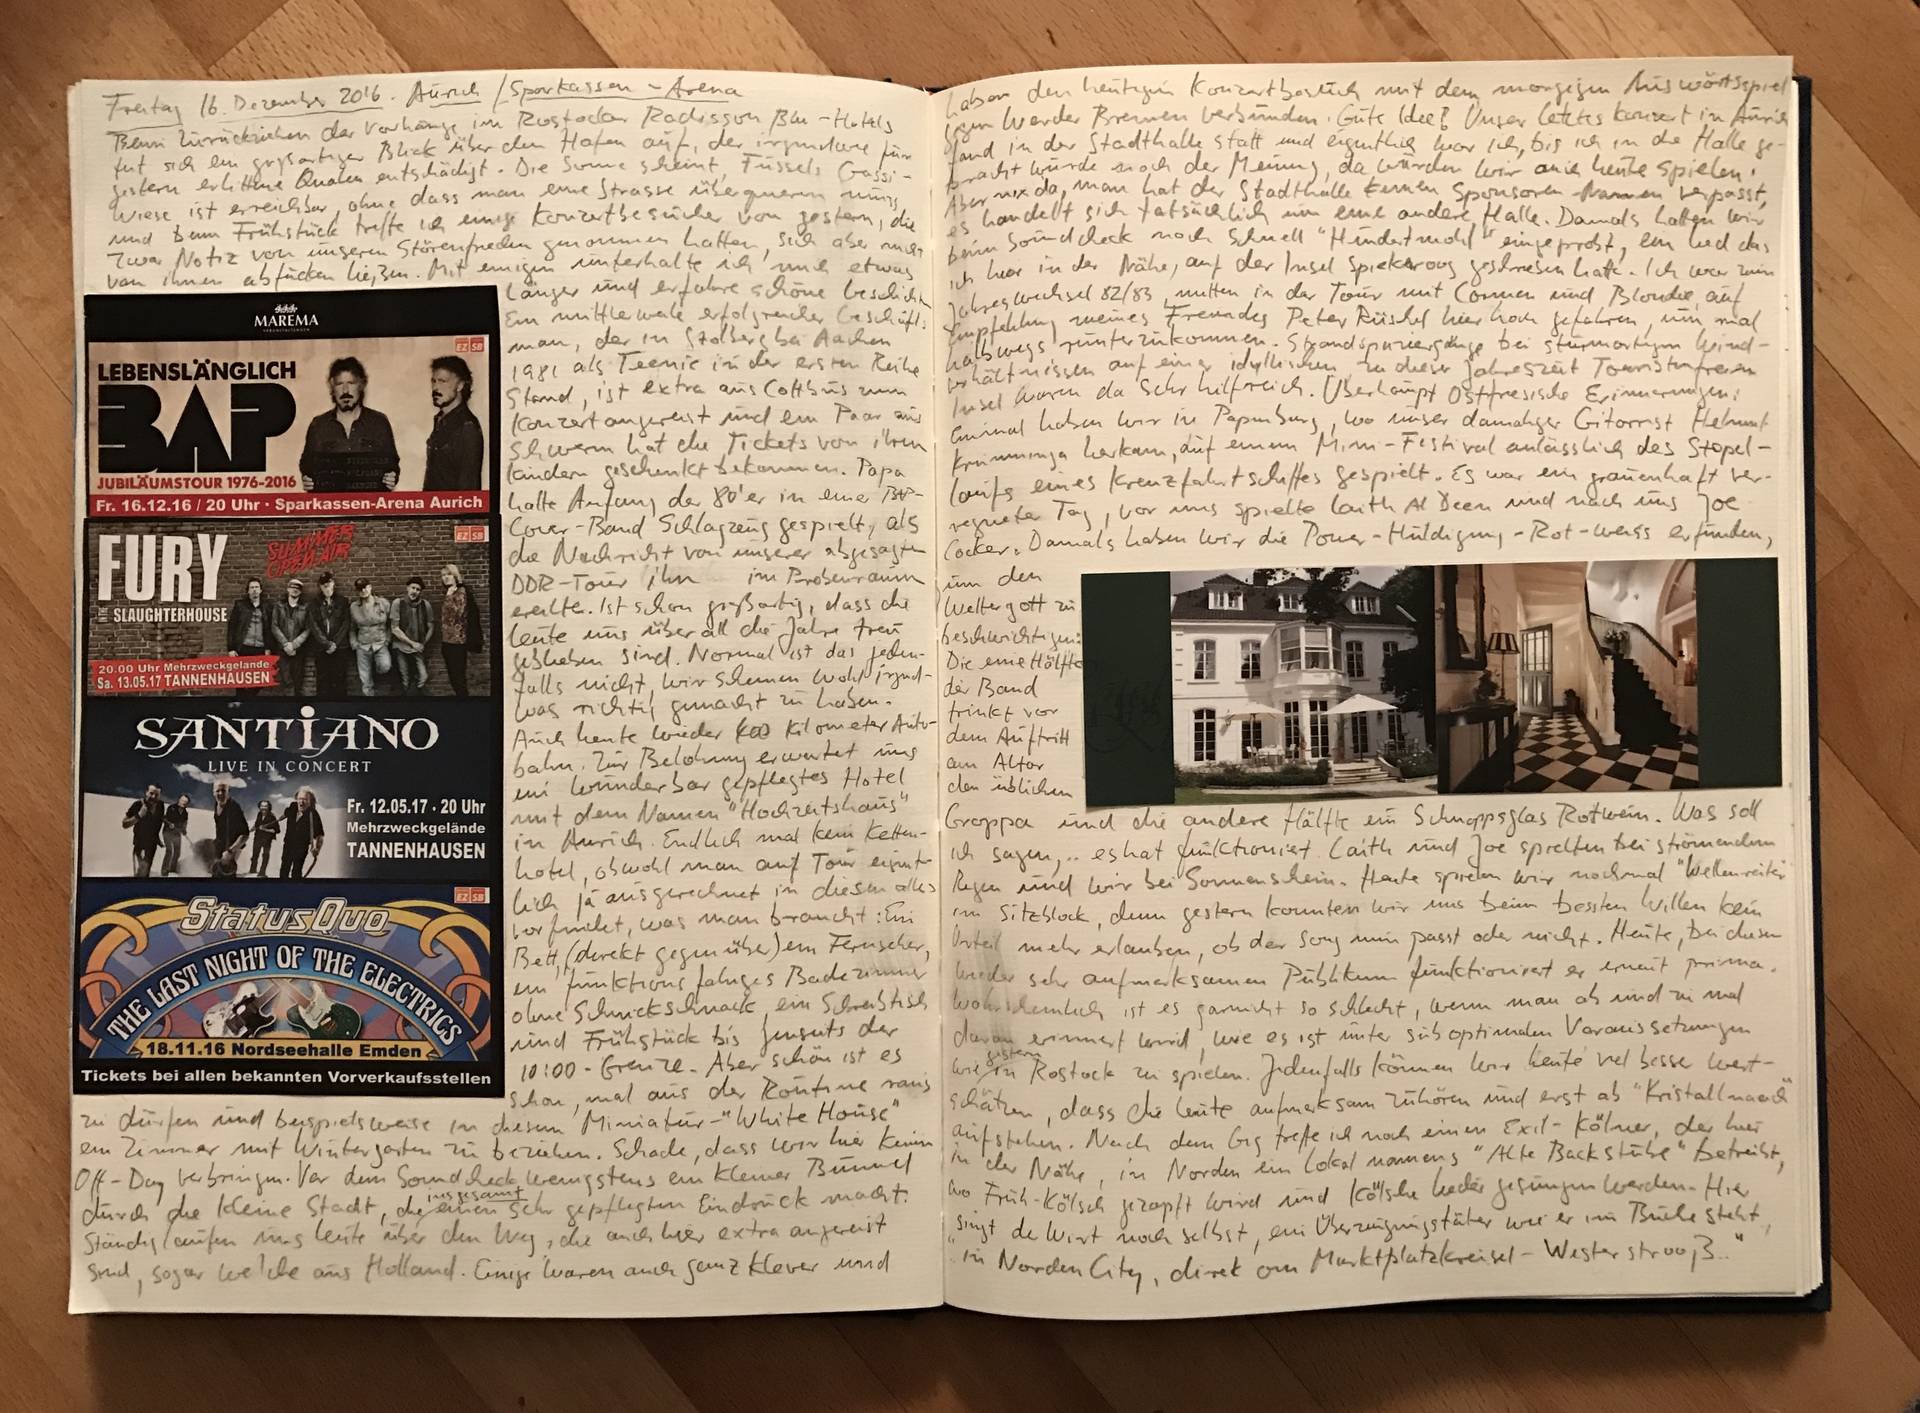 Freitag 16. Dezember 2016. Aurich / Sparkassen-Arena
Beim Zurückziehen der Vorhänge im Rostocker Radisson Blu-Hotels
tut sich ein großartiger Blick über den Hafen auf, der irgendwie für
gestern erlittene Qualen entschädigt. Die Sonne scheint, Füssels Gassi-
Wiese ist erreichbar, ohne dass man eine Strasse überqueren muss,
und beim Frühstück treffe ich einige Konzertbesucher von gestern, die
zwar Notiz von unseren Störenfrieden genommen hatten, sich aber nicht
von ihnen abfucken ließen. Mit einigen unterhalte ich mich etwas
länger und erfahre schöne Geschichten
Ein mittlerweile erfolgreicher Geschäfts-
mann, der in Stolberg bei Aachen
1981 als Teenie in der ersten Reihe
stand, ist extra aus Cottbus zum
Konzert angereist und ein Paar aus
Schwerin hat die Tickets von ihren
Kindern geschenkt bekommen. Papa
hatte Anfang der 80'er in einer BAP-
Cover-Band Schlagzeug gespielt, als
die Nachricht von unserer abgesagten
DDR-Tour ihn im Proberaum
ereilte. Ist schon großartig, dass die
Leute uns über all die Jahre treu
geblieben sind. Normal ist das jeden-
falls nicht, wir scheinen wohl irgend-
was richtig gemacht zu haben.
Auch heute wieder 400 Kilometer Auto-
bahn. Zur Belohnung erwartet uns
ein wunderbar gepflegtes Hotel
mit dem Namen "Hochzeitshaus"
in Aurich. Endlich mal kein Ketten-
hotel, obwohl man auf Tour eigent-
lich ja ausgerechnet in diesen alles
vorfindet, was man braucht: Ein
Bett, (direkt gegenüber) ein Fernseher,
ein funktionsfähiges Badezimmer
ohne Schnickschnack, ein Schreibtisch
und Frühstück bis jenseits der
10:00-Grenze. Aber schön ist es
schon, mal aus der Routine raus
zu dürfen und beispielsweise in diesem Miniatur-"White House"
ein Zimmer mit Wintergarten zu beziehen. Schade, dass wir hier keinen
Off-Day verbringen. Vor dem Soundcheck wenigstens ein kleiner Bummel
durch die kleine Stadt, die insgesamt einen sehr gepflegten Eindruck macht.
Ständig laufen uns Leute über den Weg, die auch hier extra angereist
sind, sogar welche aus Holland. Einige waren auch ganz klever und
MAREMA
LEBENSLÄNGLICH
BAP
JUBILÄUMSTOUR 1976-2016
Fr. 16.12.16 / 20 Uhr · Sparkassen-Arena Aurich
EZ SB
FURY
IN THE
SLAUGHTERHOUSE
SUMMER
OPEN AIR
EZ SB
20.00 Uhr Mehrzweckgelände
Sa. 13.05.17 TANNENHAUSEN
SANTIANO
LIVE IN CONCERT
Fr. 12.05.17 · 20 Uhr
Mehrzweckgelände
TANNENHAUSEN
EZ SB
Status Quo
THE LAST NIGHT OF THE ELECTRICS
18.11.16 Nordseehalle Emden
Tickets bei allen bekannten Vorverkaufsstellen
haben den heutigen Konzertbesuch mit dem morgigen Auswärtsspiel
gegen Werder Bremen verbunden. Gute Idee! Unser letztes Konzert in Aurich
fand in der Stadthalle statt und eigentlich war ich, bis ich in die Halle ge-
bracht wurde noch der Meinung, da würden wir auch heute spielen.
Aber nix da, man hat der Stadthalle keinen Sponsoren-Namen verpasst,
es handelt sich tatsächlich um eine andere Halle. Damals hatten wir
beim Soundcheck noch schnell "Hundertmohl" eingeprobt, ein Lied das
ich hier in der Nähe, auf der Insel Spiekeroog geschrieben hatte. Ich war zum
Jahreswechsel 82/83, mitten in der Tour mit Carmen und Blondie, auf
Empfehlung meines Freundes Peter Rüchel hier hoch gefahren, um mal
halbwegs runterzukommen. Strandspaziergänge bei sturmartigen Wind-
verhältnissen auf einer idyllischen, zu dieser Jahreszeit Touristenfreien
Insel waren da sehr hilfreich. Überhaupt Ostfriesische Erinnerungen:
Einmal haben wir in Papenburg, wo unser damaliger Gitarrist Helmut
Krumminga herkam, auf einem Mini-Festival anlässlich des Stapel-
laufs eines Kreuzfahrtschiffes gespielt. Es war ein grauenhaft ver-
regneter Tag, vor uns spielte Laith Al Deen und nach uns Joe
Cocker. Damals haben wir die Power-Huldigung-Rot-Weiss erfunden,
um den
Wettergott zu
beschwichtigen:
Die eine Hälfte
der Band
trinkt vor
dem Auftritt
am Altar
den üblichen
Grappa und die andere Hälfte ein Schnappsglas Rotwein. Was soll
ich sagen,.. es hat funktioniert. Laith und Joe spielten bei strömendem
Regen und wir bei Sonnenschein. Heute spielen wir nochmal "Wellenreiter"
im Sitzblock, denn gestern konnten wir uns beim besten Willen kein
Urteil mehr erlauben, ob der Song nun passt oder nicht. Heute, bei diesem
wieder sehr aufmerksamen Publikum funktioniert er erneut prima.
Wahrscheinlich ist es garnicht so schlecht, wenn man ab und zu mal
daran erinnert wird, wie es ist unter suboptimalen Voraussetzungen
wie gestern in Rostock zu spielen. Jedenfalls können wir heute viel besser wert-
schätzen, dass die Leute aufmerksam zuhören und erst ab "Kristallnaach"
aufstehen. Nach dem Gig treffe ich noch einen Exil-Kölner, der hier
in der Nähe, in Norden ein Lokal namens "Alte Backstube" betreibt,
wo Früh-Kölsch gezapft wird und Kölsche Lieder gesungen werden. Hier
singt de Wirt noch selbst, ein Überzeugungstäter wie er im Buche steht,
"in Norden City, direk om Marktplatzkreisel - Westerstrooß.."